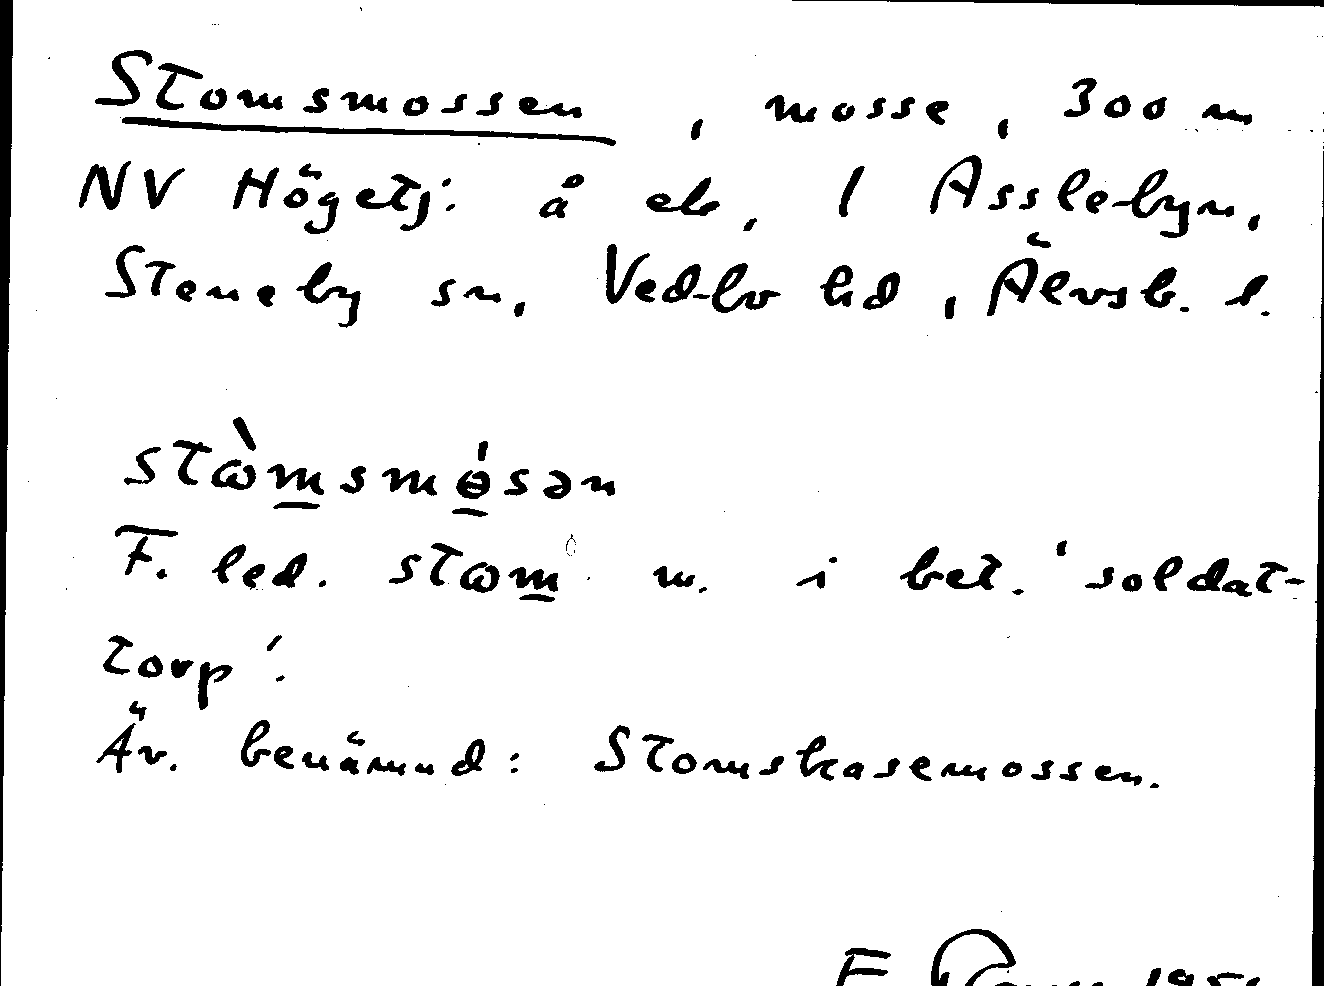 Stomsmossen, mosse, 300 m
NV Högetj: å ek, 1 Asslebyn,
Steneby sn, Vedbo hd, Älvsb. l.
stὼm̲smɵ̲́sən
F. led. stωm̲ m. i bet. 'soldat-
torp'.
Äv. benämnd: Stomskasemossen.
E